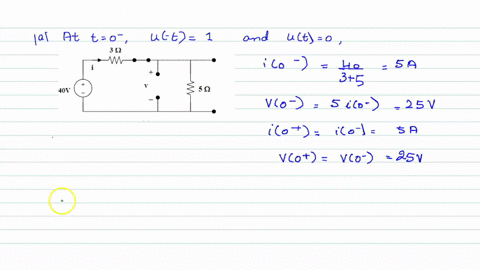 (a) At t=0⁻, u(-t) = 1 and u(t)=0,
3 Ω
i
40V
+
v
−
5 Ω
i(0⁻) = 40/(3+5) = 5A
V(0⁻) = 5 i(0⁻) = 25V
i(0⁺) = i(0⁻) = 5A
V(0⁺) = V(0⁻) = 25V